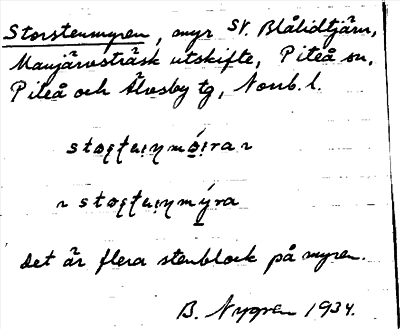 Storstenmyren, myr SV. Blålidtjärn,
Manjärvsträsk utskifte, Piteå sn,
Piteå och Älvsby tg, Norrb. l.
Det är flera stenblock på myren.
B. Nygren 1934.